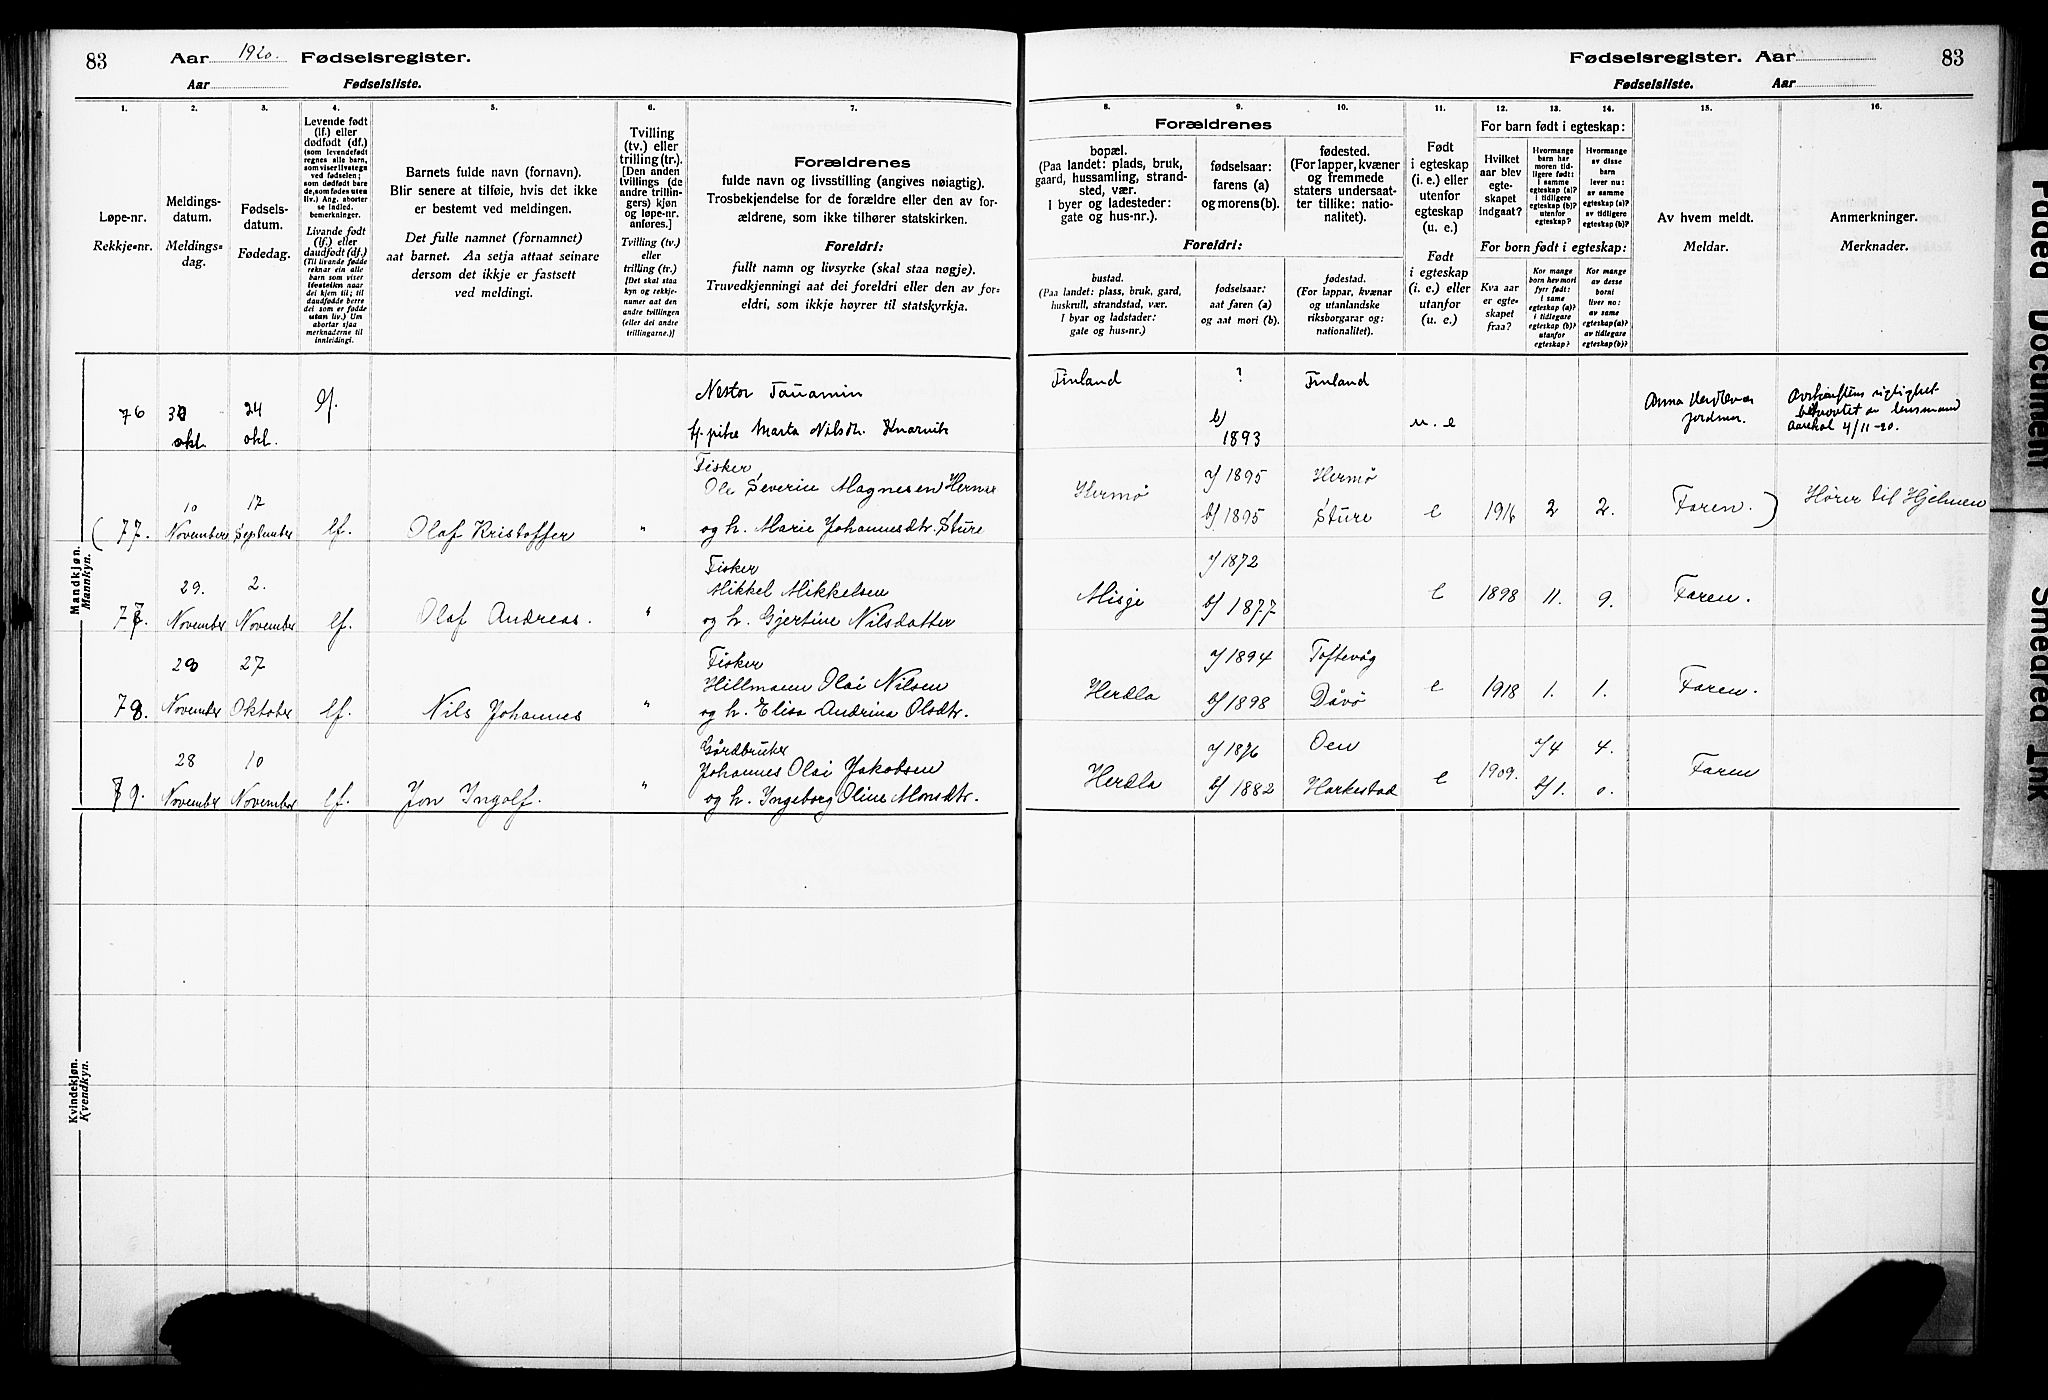 83
Aar 1920. Fødselsregister.
Aar Fødselsliste.
1. 2. 3. 4. 5. 6. 7.
Løpe-nr.
Rekkje-nr.
Meldings-
datum.
Meldings-
dag.
Fødsels-
datum.
Fødedag.
Levende født
(lf.) eller
dødfødt (df.)
(som levendefødt
regnes alle barn,
som viser livstegn
ved fødselen;
som dødfødt bare
de, som fødes uten
liv.) Ang. aborter
se indled.
bemerkninger.
Livande født
(lf.) eller
daudfødt (df.)
(Til livande fødde
reknar ein alle
barn som viser
livsteikn naar
dei kjem til; til
daudfødde berre
dei som er fødde
utan liv.) Um
abortar sjaa
merknaderne til
innleidingi.
Barnets fulde navn (fornavn).
Blir senere at tilføie, hvis det ikke
er bestemt ved meldingen.
Det fulle namnet (fornamnet)
aat barnet. Aa setja attaat seinare
dersom det ikkje er fastsett
ved meldingi.
Tvilling
(tv.) eller
trilling (tr.).
[Den anden
tvillings (de
andre trillin-
gers) kjøn
og løpe-nr.
anføres.]
Tvilling (tv.)
eller
trilling (tr.)
[Det skal staa
kyn og rekkje-
numer aat den
andre tvillingen
(eller dei andre
trillingarne.)]
Forældrenes
fulde navn og livsstilling (angives nøiagtig).
Trosbekjendelse for de forældre eller den av for-
ældrene, som ikke tilhører statskirken.
Foreldri:
fullt namn og livsyrke (skal staa nøgje).
Truvedkjenningi aat dei foreldri eller den av for-
eldri, som ikkje høyrer til statskyrkja.
Mandkjøn.
Mannkyn.
76 30 okt. 24 okt. lf. Nestor
f. pike Marta Nilsdtr. Knarvik
(77. 10 November 17 September lf. Olaf Kristoffer "
Fisker
Ole Severin Magnesen Hermø
og h. Marie Johannesdtr. Sture
77. 29. November 2. November lf. Olaf Andreas. "
Fisker
Mikkel Mikkelsen
og h. Gjertine Nilsdatter
78. 28 November 27 Oktober lf. Nils Johannes "
Fisker
Hillmann Olai Nilsen
og h. Elisa Andrina Olsdtr.
79. 28 November 10 November lf. Jon Ingolf. "
Gårdbruker
Johannes Olai Jakobsen
og h. Ingeborg Oline Monsdtr.
Kvindekjøn.
Kvendkyn.
Fødselsregister. Aar 83
Fødselsliste. Aar
8. 9. 10. 11. 12. 13. 14. 15. 16.
Forældrenes
bopæl.
(Paa landet: plads, bruk,
gaard, hussamling, strand-
sted, vær.
I byer og ladesteder:
gate og hus-nr.).
fødselsaar:
farens (a)
og morens (b).
fødested.
(For lapper, kvæner
og fremmede
staters undersaat-
ter tillike: natio-
nalitet).
Foreldri:
bustad.
(Paa landet: plass, bruk, gard,
huskrull, strandstad, vær.
I byar og ladstader:
gate og hus-nr.)
fødselsaar:
aat faren (a)
og aat mori (b).
fødestad.
(For lappar, kvænar
og utanlandske
riksborgarar og:
nationalitet).
Født
i egteskap
(i. e.) eller
utenfor
egteskap
(u. e.)
Født
i egteskap
(i. e.) eller
utanfor
egteskap
(u. e.)
For barn født i egteskap:
Hvilket
aar blev
egte-
skapet
indgaat?
Hvormange
barn har
moren tid-
ligere født:
i samme
egteskap (a)?
i tidligere
egteskap (b)?
utenfor
egteskap?
Hvormange
av disse
barn
lever nu:
av samme
egteskap (a)?
av tidligere
egteskap (b)?
For born født i egteskap:
Kva aar
er egte-
skapet
fraa?
Kor mange
born hev mori
fyrr født:
i same
egteskap (a)?
i tidlegare
egteskap (b)?
utanfor
egteskap?
Kor mange
av desse
borni
liver no:
av same
egteskap (a)?
av tidlegare
egteskap (b)?
Av hvem meldt.
Meldar.
Anmerkninger.
Merknader.
Finland ? b) 1893 Finland u. e Anna jordmor.
rigtighet
av lensmand
4/11-20.
Hermø a/ 1895 b/ 1895 Hermø Sture e 1916 2 2. Faren. ) Hører til Hjelmen
Misje a/ 1872 b/ 1877 e 1898 11. 9. Faren.
Herdla a/ 1894 b/ 1898 Toftevåg Dåvø e 1918 1. 1. Faren.
Herdla a/ 1876 b/ 1882 Oen Harkestad e 1909. a/4 b/1. 4. 0. Faren
Faded Document
Smeared Ink